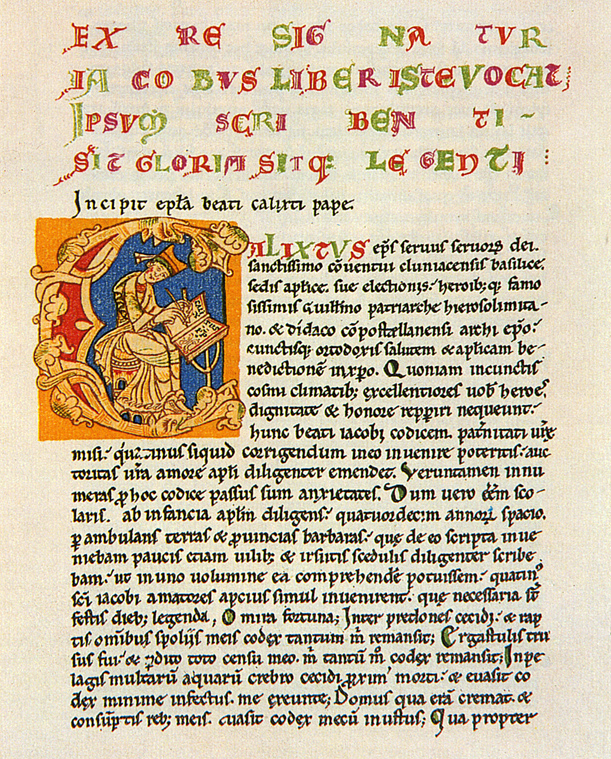 EX RE SIGNATUR
IACOBUS LIBER ISTE VOCAT,
IPSUM SCRIBENTI-
SIT GLORIA SITQ: LEGENTI
Incipit epła beati calixti pape.
CALIXTVS ep̄s seruus seruoꝝ dei.
sanctissimo cōuentui cluniacensis basilice.
sedis aplice. sue electionis. heroib; q; famo
sissimis Guillmo patriarche hierosolimita-
no. & didaco cōpostellanensi archi ep̄o.
cunctisq; ortodoxis salutem & aplicam be-
nedictionē in xp̄o. Quoniam in cunctis
cosmi climatib; excellentiores uob heroes.
dignitate & honore repperiri nequeunt.
hunc beati iacobi codicem. pat̄nitati ur̄e
misi. quatinus siquid corrigendum in eo inuenire poteritis. auc
toritas ur̄a amore apłi diligenter emendet. Veruntamen innu
meras ꝓ hoc codice passus sum anxietates. Dum uero essem sco-
laris. ab infancia apłm diligens. quatuordecim annoꝝ spacio.
ꝑambulans terras & ꝓuincias barbaras. que de eo scripta inue
niebam paucis etiam uilib; & irsutis scedulis diligenter scribe
bam. ut in uno uolumine ea comprehendē potuissem. quatinꝰ
sc̄i iacobi amatores apcius simul inuenirent. que necessaria st̄
festis dieb; legenda, O mira fortuna; Inter predones cecidi. & rap
tis omībus spoliis meis codex tantum m̄ remansit; Ergastulis tru
sus fui. & ꝑdito toto censu meo. m̄ tantū m̄ codex remansit; In pe
lagis multarū aquarū crebro cecidi ꝓxim̄ morti. & euasit co
dex minime infectus. me exeunte; Domus qua erā cremat̄. &
consūptis reb; meis. euasit codex mecū inustus; Qua propter